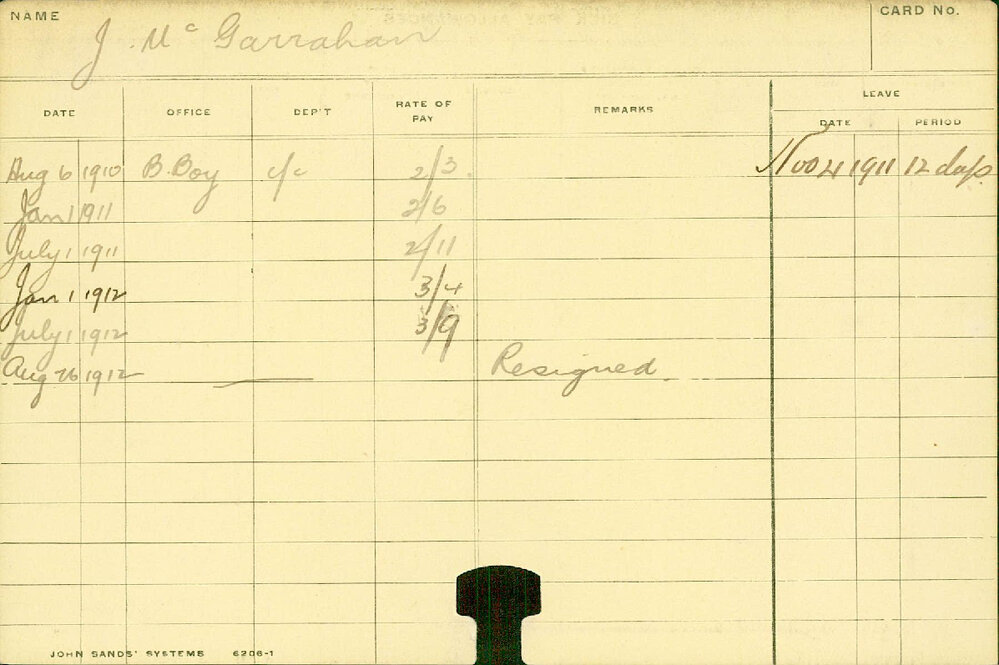 NAME J. Mc Garrahan CARD No.
LEAVE
DATE OFFICE DEP'T RATE OF PAY REMARKS DATE PERIOD
Aug 6 1910 B. Boy c/c 2/3. Nov 4 1911 12 days
Jan 1 1911 2/6
July 1 1911 2/11
Jan 1 1912 3/4
July 1 1912 3/9
Aug 26 1912 Resigned.
JOHN SANDS' SYSTEMS 6206-1